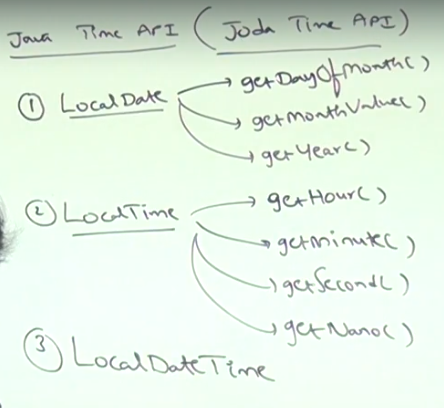 Java Time API (Joda Time API)
① LocalDate → getDayOfMonth()
→ getMonthValue()
→ getYear()
② LocalTime → getHour()
→ getMinute()
→ getSecond()
→ getNano()
③ LocalDateTime